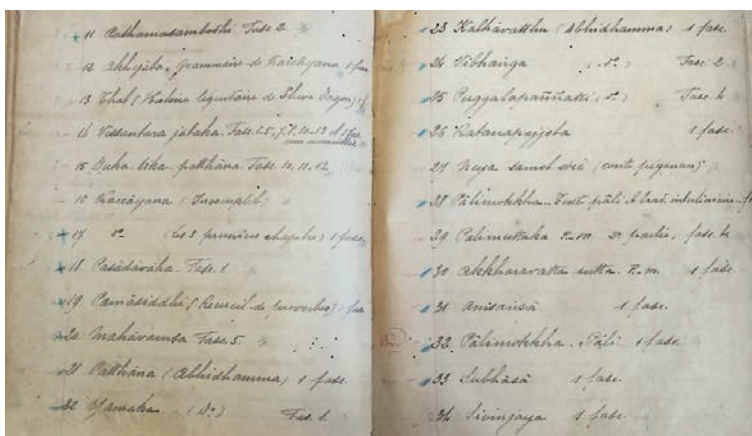 11 Pathamasambodhi Fasc. 2
12 Akhyâta, grammaire de Kaccâyana 1 fasc
13 That (Histoire légendaire de Shwe Dagon)
14 Vessantara jâtaka. Fasc. 1-5, 7, 8, 10-13 et 1 fasc
non numéroté
15 Duka tika patthâna. Fasc. 10, 11, 12
16 Kaccâyana (Incomplet)
17 do (les 3 premiers chapitres) 1 fasc.
18 Pasâdâvâha. Fasc. 1
19 Pamâsiddhi (Recueil de proverbes) 1 fasc
20 Mahâvamsa Fasc. 5.
21 Patthâna (Abhidhamma) 1 fasc.
22 Yamaka (do) Fasc. 1.
23 Kathâvatthu (Abhidhamma) 1 fasc.
24 Vibhanga (do) Fasc. 2
25 Puggalapaññatti (do) Fasc. 4
26 Ratanapajjota 1 fasc.
27 samot (conte péguan)
28 Pâtimokkha. Texte pâli et trad.
29 Palimuttaka P.-m. 2e partie, fasc. 4.
30 Akkharavatta sutta. P.-m. 1 fasc.
31 Anisansâ 1 fasc.
32 Pâtimokkha. Pâli 1 fasc.
33 Subhâsâ 1 fasc.
34 Sivinjaya 1 fasc.